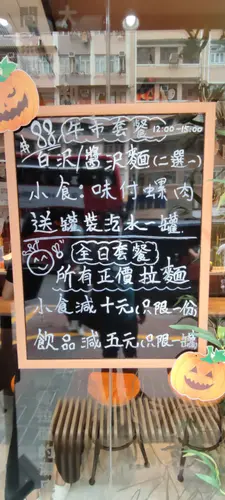 $88 午市套餐 12:00-15:00
白沢/醬沢麵(二選一)
小食:味付螺肉
送罐裝汽水一罐
全日套餐
所有正價拉麵
小食減十元(只限一份)
飲品減五元(只限一罐)